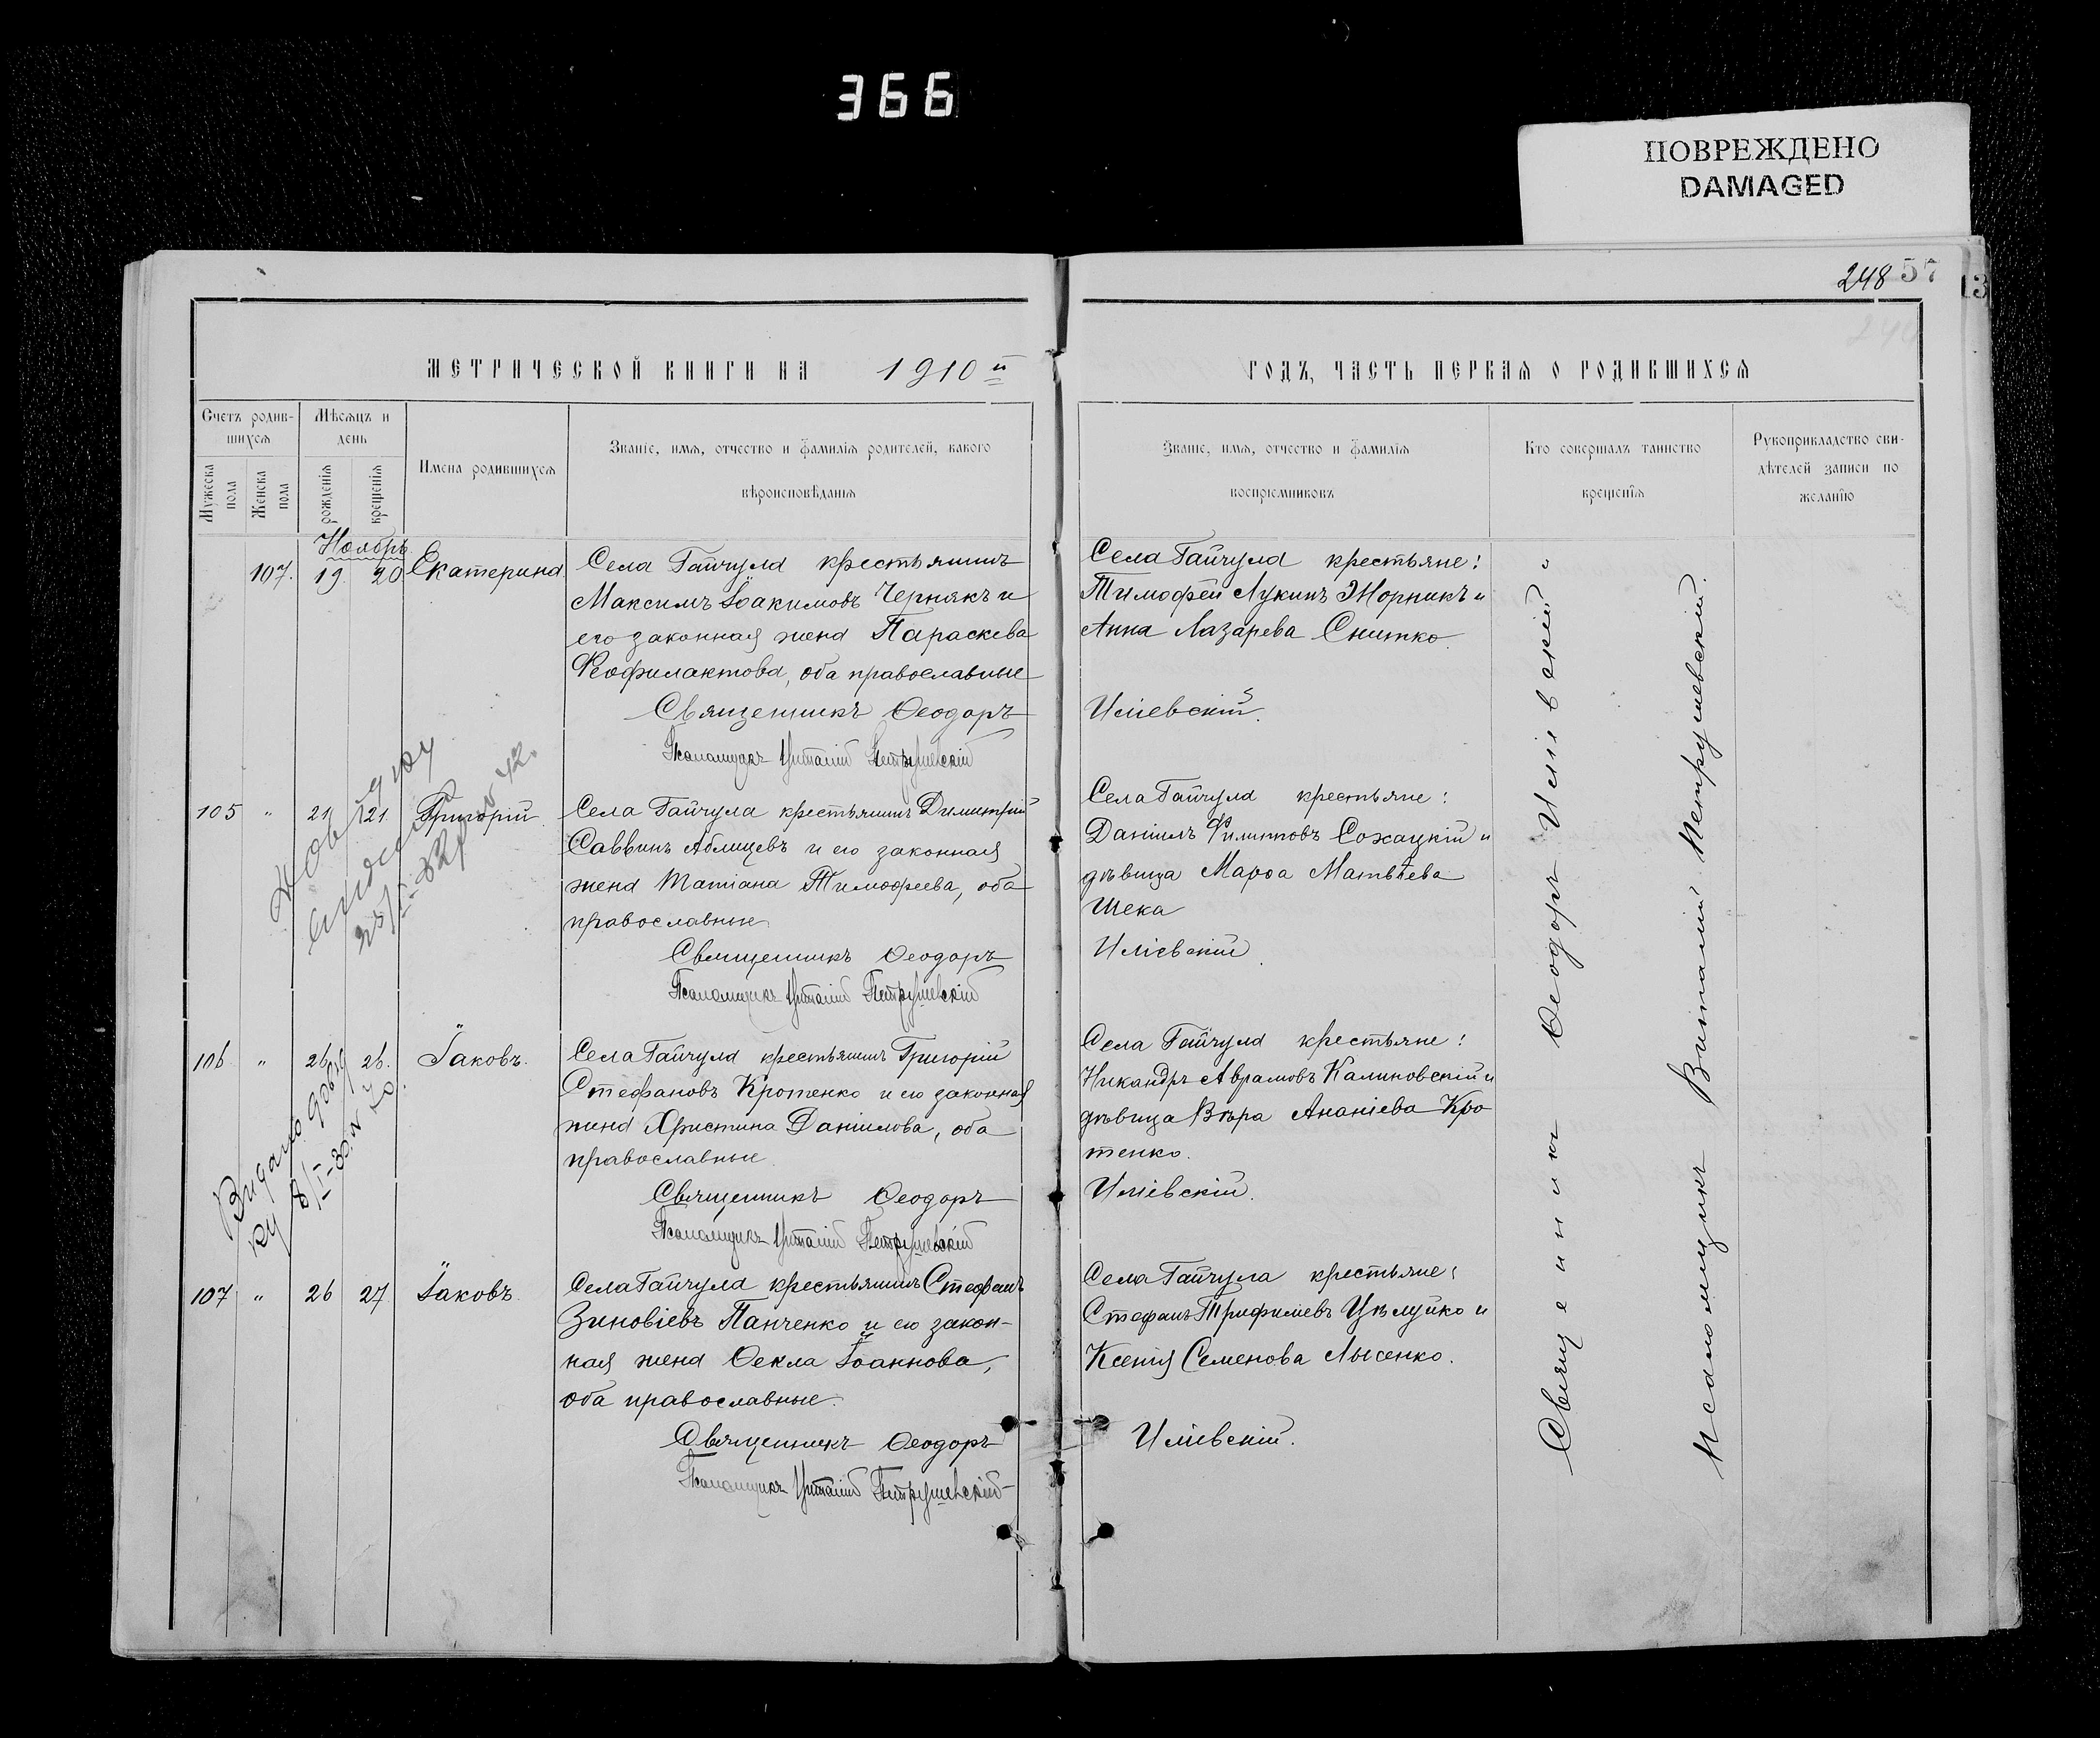 366
ПОВРЕЖДЕНО
DAMAGED
248 57
13
МЕТРИЧЕСКОЙ КНИГИ НА 1910й
ГОДЪ, ЧАСТЬ ПЕРВАЯ О РОДИВШИХСЯ
Счетъ родив-
шихся
Мужеска пола
Женска пола
Мѣсяцъ и
день
рожденія
крещенія
Имена родившихся
Званіе, имя, отчество и фамилія родителей, какого
вѣроисповѣданія
Званіе, имя, отчество и фамилія
воспріемниковъ
Кто совершалъ таинство
крещенія
Рукоприкладство сви-
дѣтелей записи по
желанію
Ноябрь
107. 19 20 Екатерина
Села Гайчула крестьянинъ
Максимъ Іоакимовъ Чернякъ и
его законная жена Параскева
Феофилактова, оба православные
Священникъ Ѳеодоръ
Псаломщикъ Виталій Петрушевскій
Села Гайчула крестьяне:
Тимофей Лукинъ Жорникъ и
Анна Лазарева Снитко.
Иліевскій.
105 " 21 21 Григорій
Села Гайчула крестьянинъ Димитрій
Саввинъ Аблицевъ и его законная
жена Татіана Тимофеева, оба
православные
Священникъ Ѳеодоръ
Псаломщикъ Виталій Петрушевскій
Села Гайчула крестьяне:
Даніилъ Филипповъ Сохацкій и
дѣвица Марѳа Матвѣева
Шека
Иліевскій
106 " 26 26. Іаковъ.
Села Гайчула крестьянинъ Григорій
Стефановъ Кротенко и его законная
жена Христина Даніилова, оба
православные
Священникъ Ѳеодоръ
Псаломщикъ Виталій Петрушевскій
Видано довід
ку 8/I-30. N
Села Гайчула крестьяне:
Никандръ Аврамовъ Калиновскій и
дѣвица Вѣра Ананіева Кро
тенко.
Иліевскій.
107 " 26 27 Іаковъ
Села Гайчула крестьянинъ Стефанъ
Зиновіевъ Панченко и его закон-
ная жена Ѳекла Іоаннова,
оба православные.
Священникъ Ѳеодоръ
Псаломщикъ Виталій Петрушевскій
Села Гайчула крестьяне:
Стефанъ Трифиліевъ Цѣлуйко и
Ксенія Семенова Лысенко.
Иліевскій.
Священникъ Ѳеодоръ Иліевскій "
Псаломщикъ Виталій Петрушевскій.